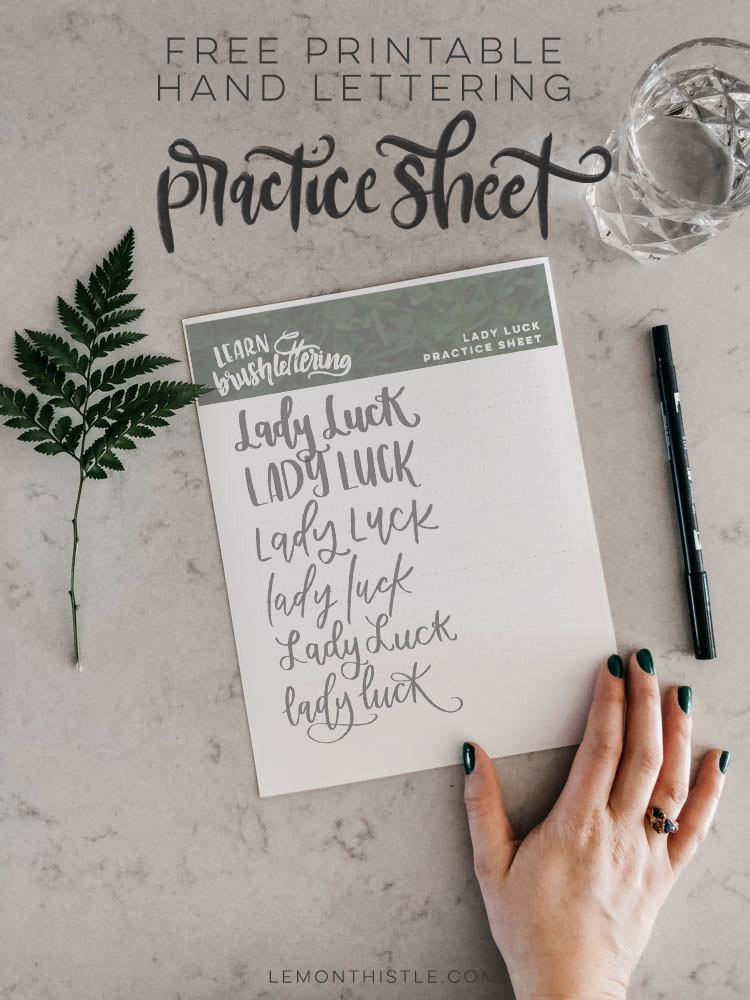 FREE PRINTABLE
HAND LETTERING
practice sheet
LEARN
brushlettering
LADY LUCK
PRACTICE SHEET
Lady Luck
LADY LUCK
Lady Luck
lady luck
Lady Luck
lady luck
LEMONTHISTLE.COM